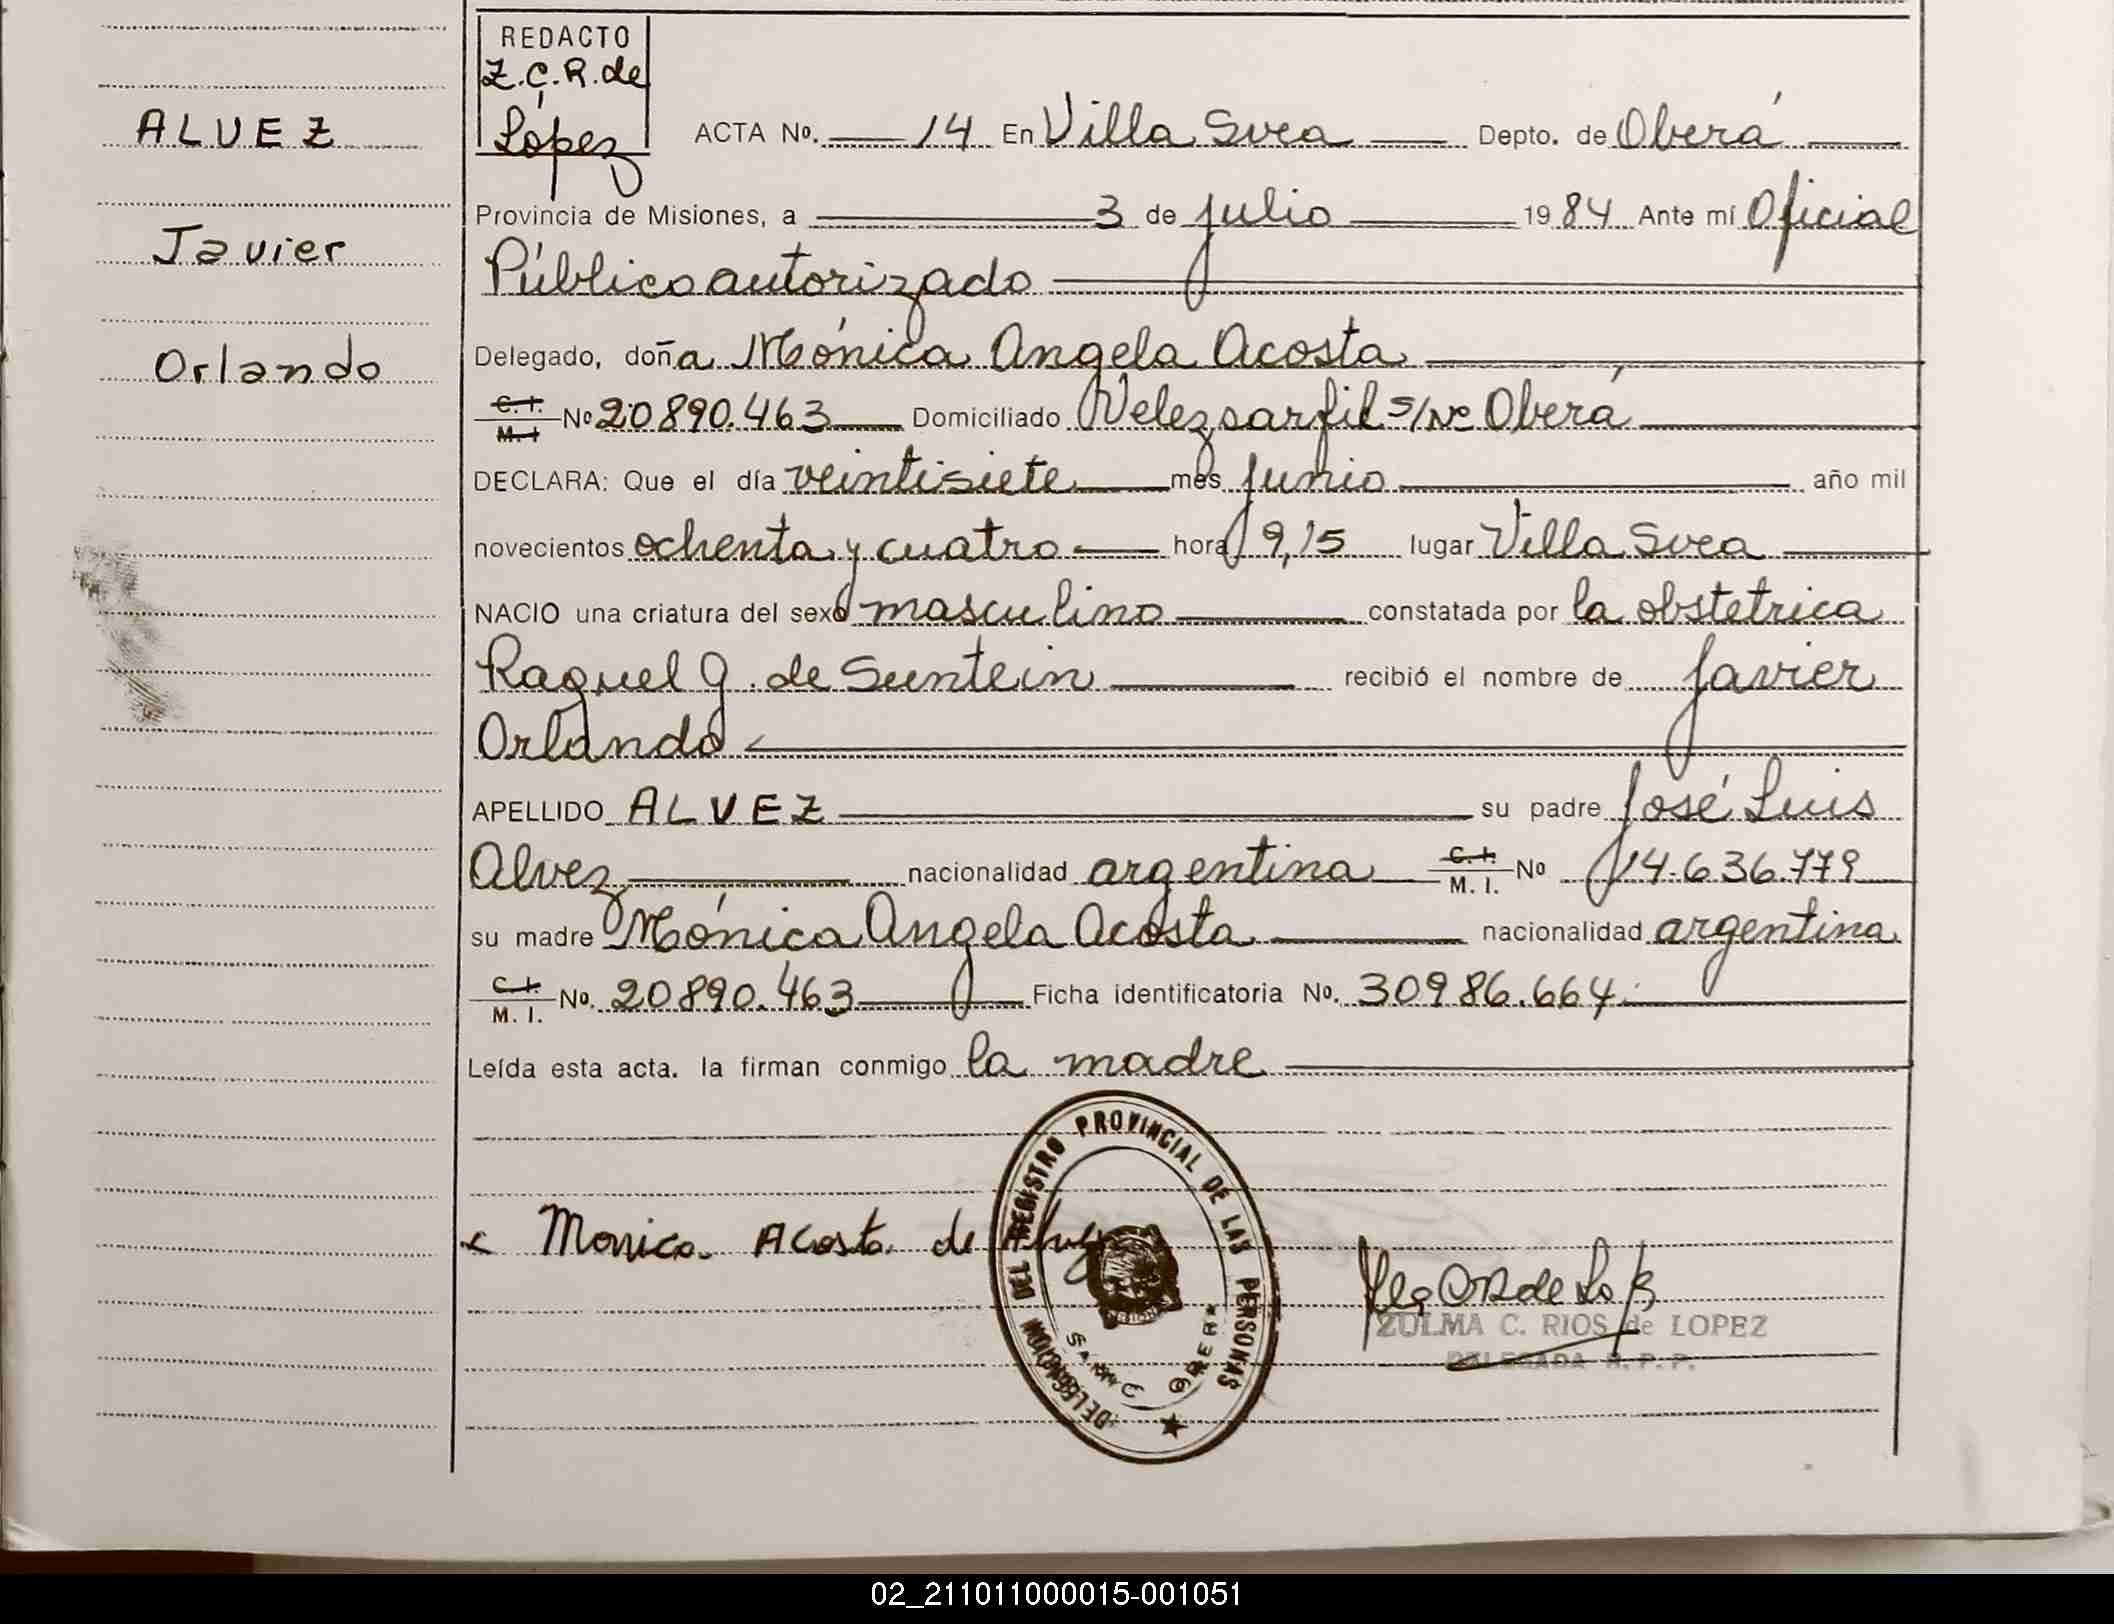 REDACTO
Z.C.R. de
López
ALVEZ
Javier
Orlando
ACTA No. 14 En Villa Svea Depto. de Oberá
Provincia de Misiones, a 3 de julio 1984 Ante mí Oficial
Público autorizado
Delegado, doña Mónica Angela Acosta
C. I. M. I No 20890.463 Domiciliado Velez sarfil s/Nº Oberá
DECLARA: Que el día veintisiete mes junio año mil
novecientos ochenta y cuatro hora 9,15 lugar Villa Svea
NACIO una criatura del sexo masculino constatada por la obstetrica
Raquel G. de Suntein recibió el nombre de Javier
Orlando
APELLIDO ALVEZ su padre José Luis
Alvez nacionalidad argentina C. I. M. I. No 14.636.779
su madre Mónica Angela Acosta nacionalidad argentina
C. I. M. I. No. 20890.463 Ficha identificatoria No. 30986.664
Leída esta acta. la firman conmigo la madre
DELEGACION DEL REGISTRO PROVINCIAL DE LAS PERSONAS
Monica Acosta de
ZULMA C. RIOS de LOPEZ
DELEGADA R. P. P.
02_211011000015-001051